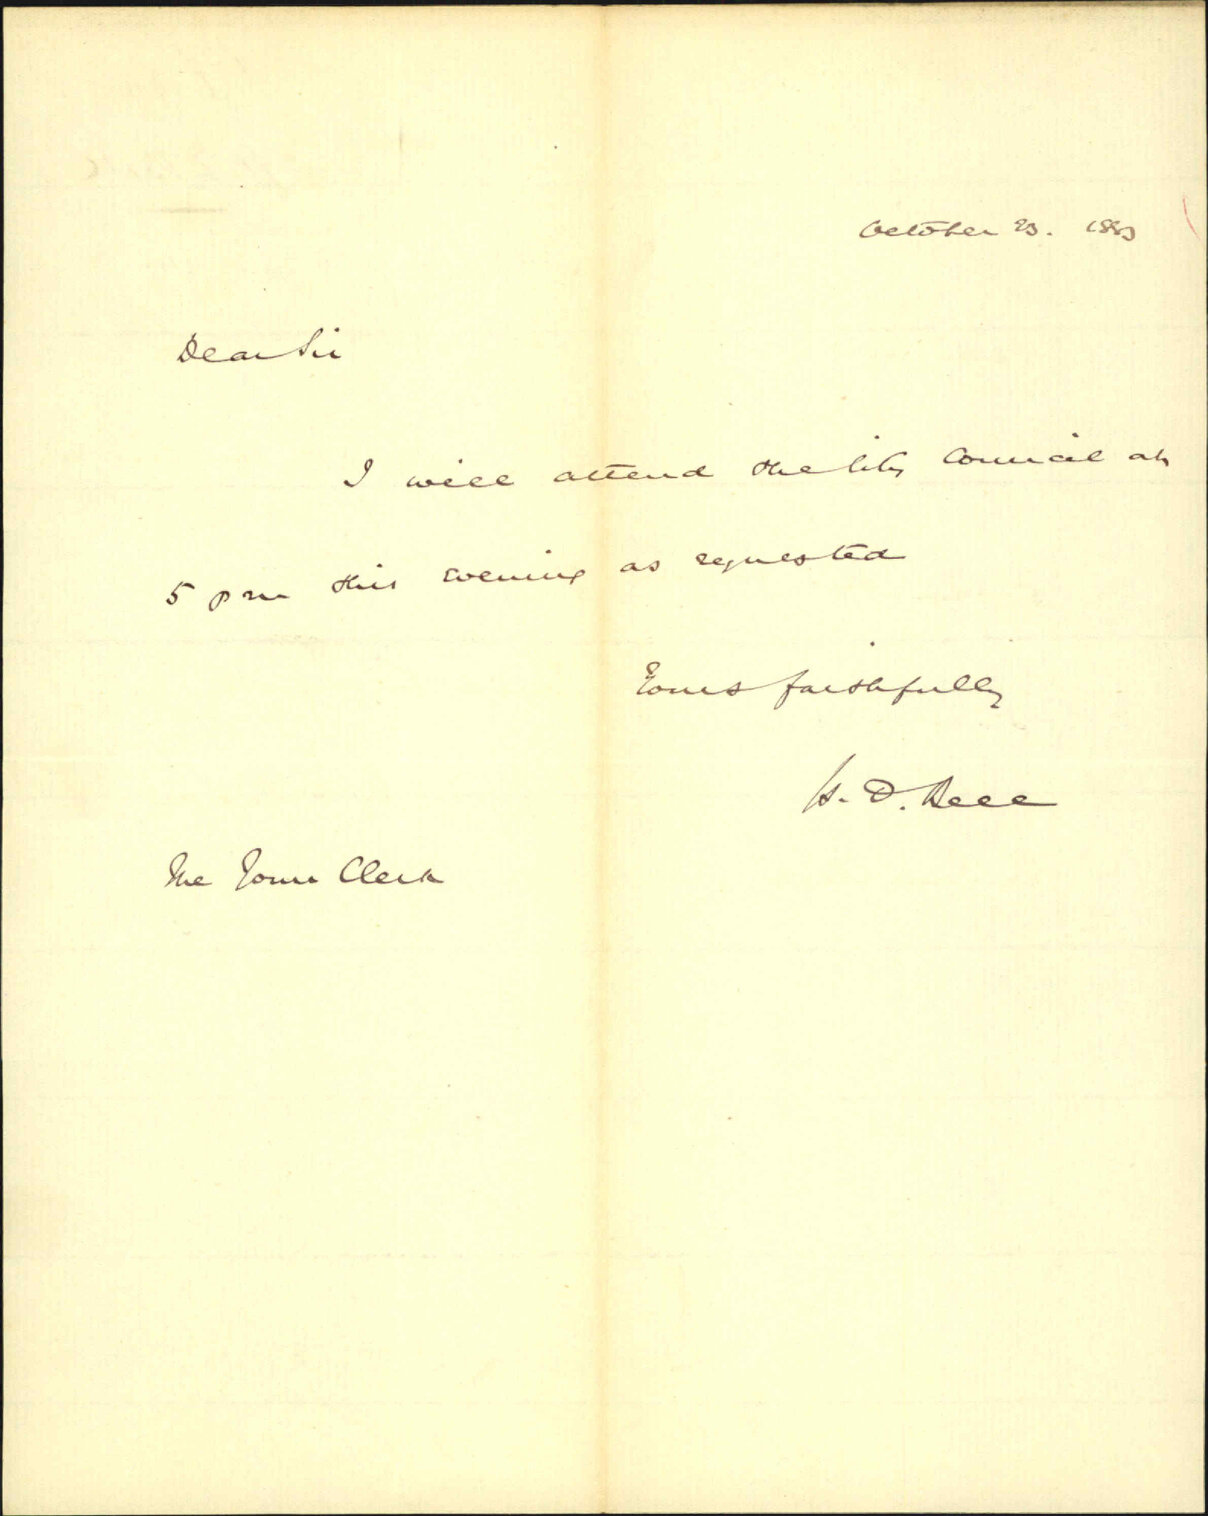 October 23. 1883
Dear Sir
I will attend the City Council at
5 pm this evening as requested
Yours faithfully
H. D. Bell
The Town Clerk